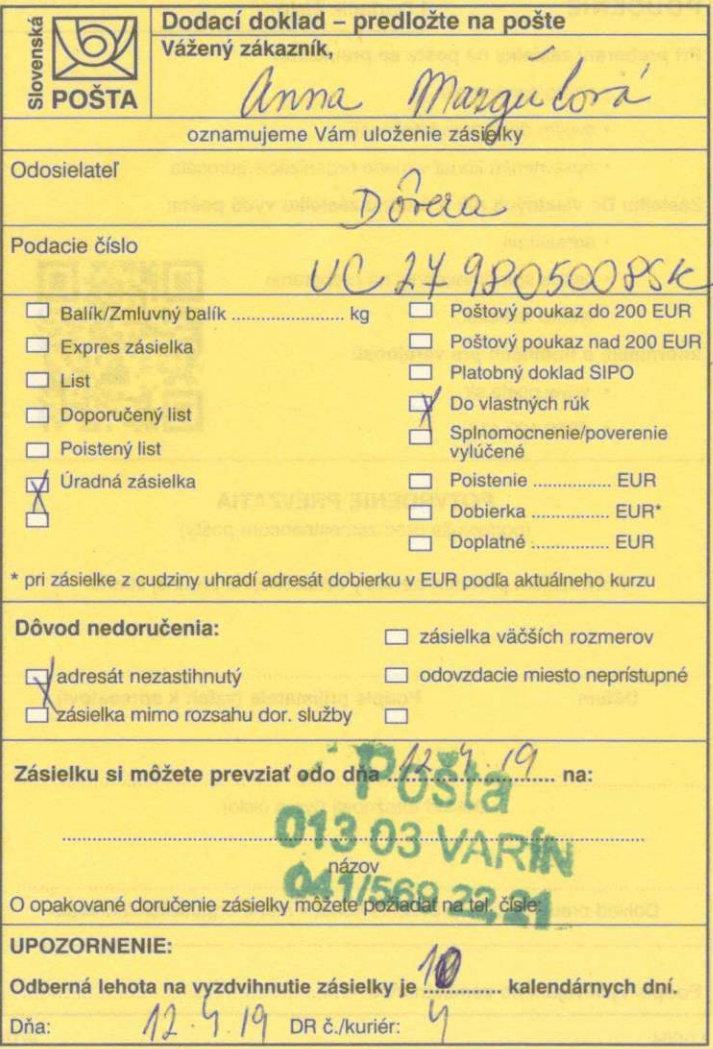 Slovenská
POŠTA
Dodací doklad – predložte na pošte
Vážený zákazník,
Anna
oznamujeme Vám uloženie zásielky
Odosielateľ
Dôvera
Podacie číslo
UC 279805008SK
Balík/Zmluvný balík .................... kg
Expres zásielka
List
Doporučený list
Poistený list
Úradná zásielka
Poštový poukaz do 200 EUR
Poštový poukaz nad 200 EUR
Platobný doklad SIPO
Do vlastných rúk
Splnomocnenie/poverenie
vylúčené
Poistenie .............. EUR
Dobierka .............. EUR*
Doplatné .............. EUR
* pri zásielke z cudziny uhradí adresát dobierku v EUR podľa aktuálneho kurzu
Dôvod nedoručenia:
zásielka väčších rozmerov
adresát nezastihnutý
odovzdacie miesto neprístupné
zásielka mimo rozsahu dor. služby
Zásielku si môžete prevziať odo dňa 12.4.19 na:
Pošta
013 03 VARÍN
názov
041/569 22 21
O opakované doručenie zásielky môžete požiadať na tel. čísle:
UPOZORNENIE:
Odberná lehota na vyzdvihnutie zásielky je 10 kalendárnych dní.
Dňa: 12.4.19 DR č./kuriér: 4